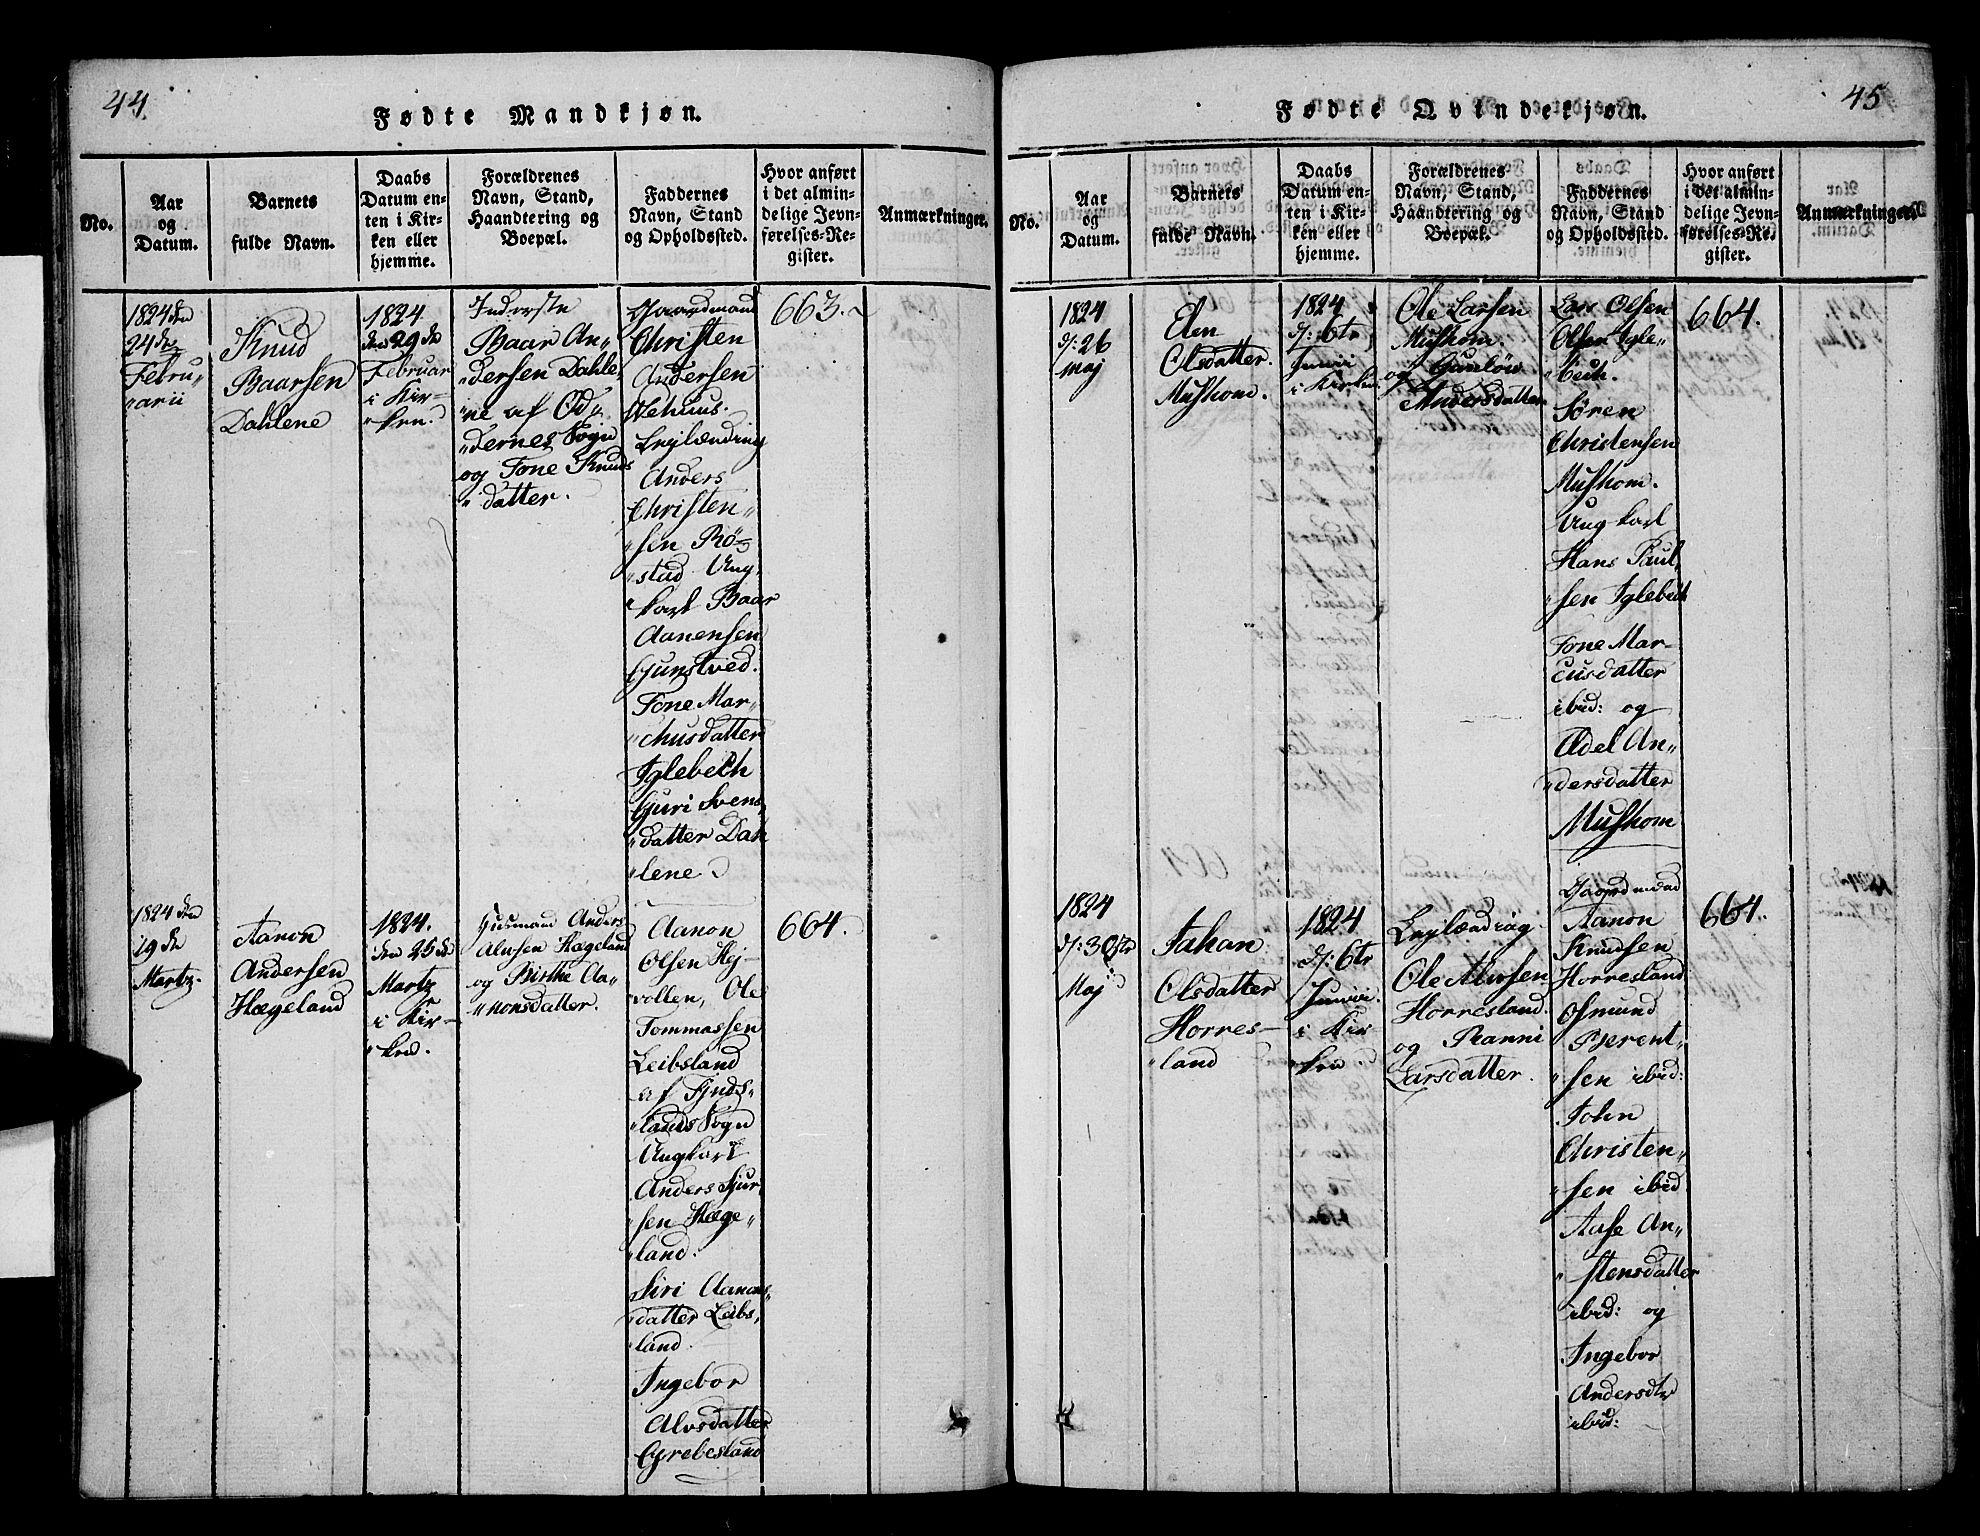 44.
Fødte Mandkjøn.
No.
Aar
og
Datum.
Barnets
fulde Navn.
Daabs
Datum en-
ten i Kir-
ken eller
hjemme.
Forældrenes
Navn, Stand,
Haandtering og
Boepæl.
Faddernes
Navn, Stand
og Opholdssted.
Hvor anført
i det almin-
delige Jevn-
førelses-Re-
gister.
Anmærkninger.
1824 den
24de
Febru"
"arii
Knud
Baarsen
Dahlene
1824
den 29de
Februar
i Kir-
"ken.
Inderste
Baar An"
"dersen Dahle"
"ne af Od"
"dernes Sogn
og Tone Knuds
"datter.
Gaardmand
Christen
Andersen
Lejlænding
Anders
Christen"
"sen Rø-
"stad Ung"
"karl Baar
Aanensen
Gunstved.
Tone Mar"
"chusdatter
Iglebech
Guri Svens"
"datter Dah
"lene
663.
1824 den
19de
Martz.
Aanon
Andersen
Hægeland
1824.
den 25de
Martz
i Kir-
"ken.
Huusmand Anders
Alvsen Hægeland
og Birthe Aa"
"nonsdatter.
Aanon
Olsen Hej-
vollen, Ole
Tommassen
Leibsland
af Finds"
"lands Sogn
Ungkarl
Anders Sjur"
"sen Hæge"
"land.
Siri Aanons"
"datter Leibs"
"land.
Ingebor
Alvsdatter
Grebesland
664.
45
Fødte Qvindekjøn.
No.
Aar
og
Datum.
Barnets
fulde Navn.
Daabs
Datum en-
ten i Kir-
ken eller
hjemme.
Forældrenes
Navn, Stand,
Haandtering og
Boepæl.
Faddernes
Navn, Stand
og Opholdssted.
Hvor anført
i det almin-
delige Jevn-
førelses-Re-
gister.
Anmærkninger.
1824
d: 26
Maj
Elen
Olsdatter
Mushom.
1824
d: 6te
Junii
i Kirken.
Ole Larsen
Mushom.
og Gunløv
Andersdatter.
Lars Olsen
Olsen Igle"
"bech.
Søren
Christensen
Mushom.
Ung karl
Hans Paul"
"sen Iglebech
Tone Mar-
cusdatter
ibid: og
Adel An"
"dersdatter
Mushom
664.
1824
d: 30te
Maj
Johan
Olsdatter
Horres-
"land
1824
d: 6te
Junii.
i Kir
"ken.
Lejlænding
Ole Alvsen
Horresland.
og Ranni
Larsdatter.
Gaardmand
Aanon
Knudsen
Horresland
Osmund
Berent"
"sen ibid:
John
Christen"
"sen ibid
Aase An"
"stensdatter
ibid: og
Ingebor
Andersdtr
ibid:
664.